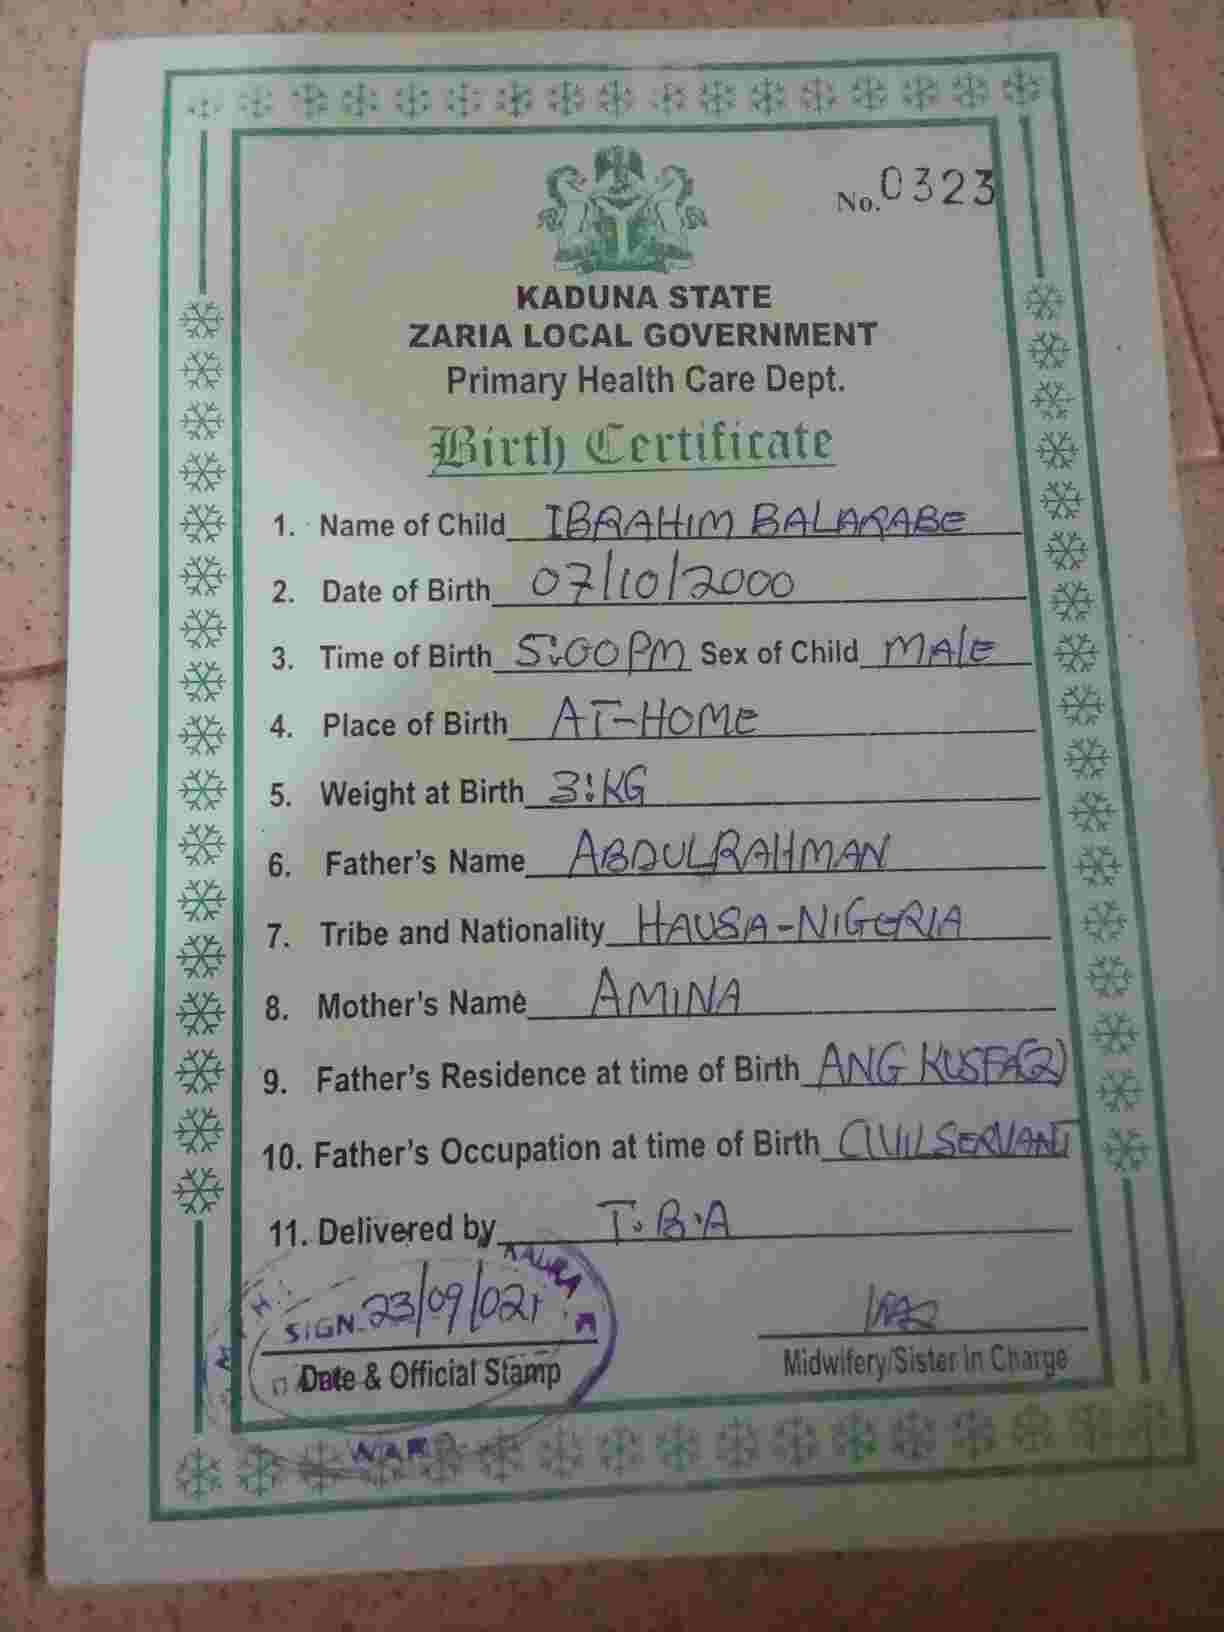 No. 0323
KADUNA STATE
ZARIA LOCAL GOVERNMENT
Primary Health Care Dept.
Birth Certificate
1. Name of Child IBRAHIM BALARABE
2. Date of Birth 07/10/2000
3. Time of Birth 5:00PM Sex of Child MALE
4. Place of Birth AT-HOME
5. Weight at Birth 3:KG
6. Father's Name ABDULRAHMAN
7. Tribe and Nationality HAUSA-NIGERIA
8. Mother's Name AMINA
9. Father's Residence at time of Birth ANG KUSFA(2)
10. Father's Occupation at time of Birth CIVILSERVANT
11. Delivered by T.B.A
SIGN 23/09/021
Date & Official Stamp
Midwifery/Sister In Charge